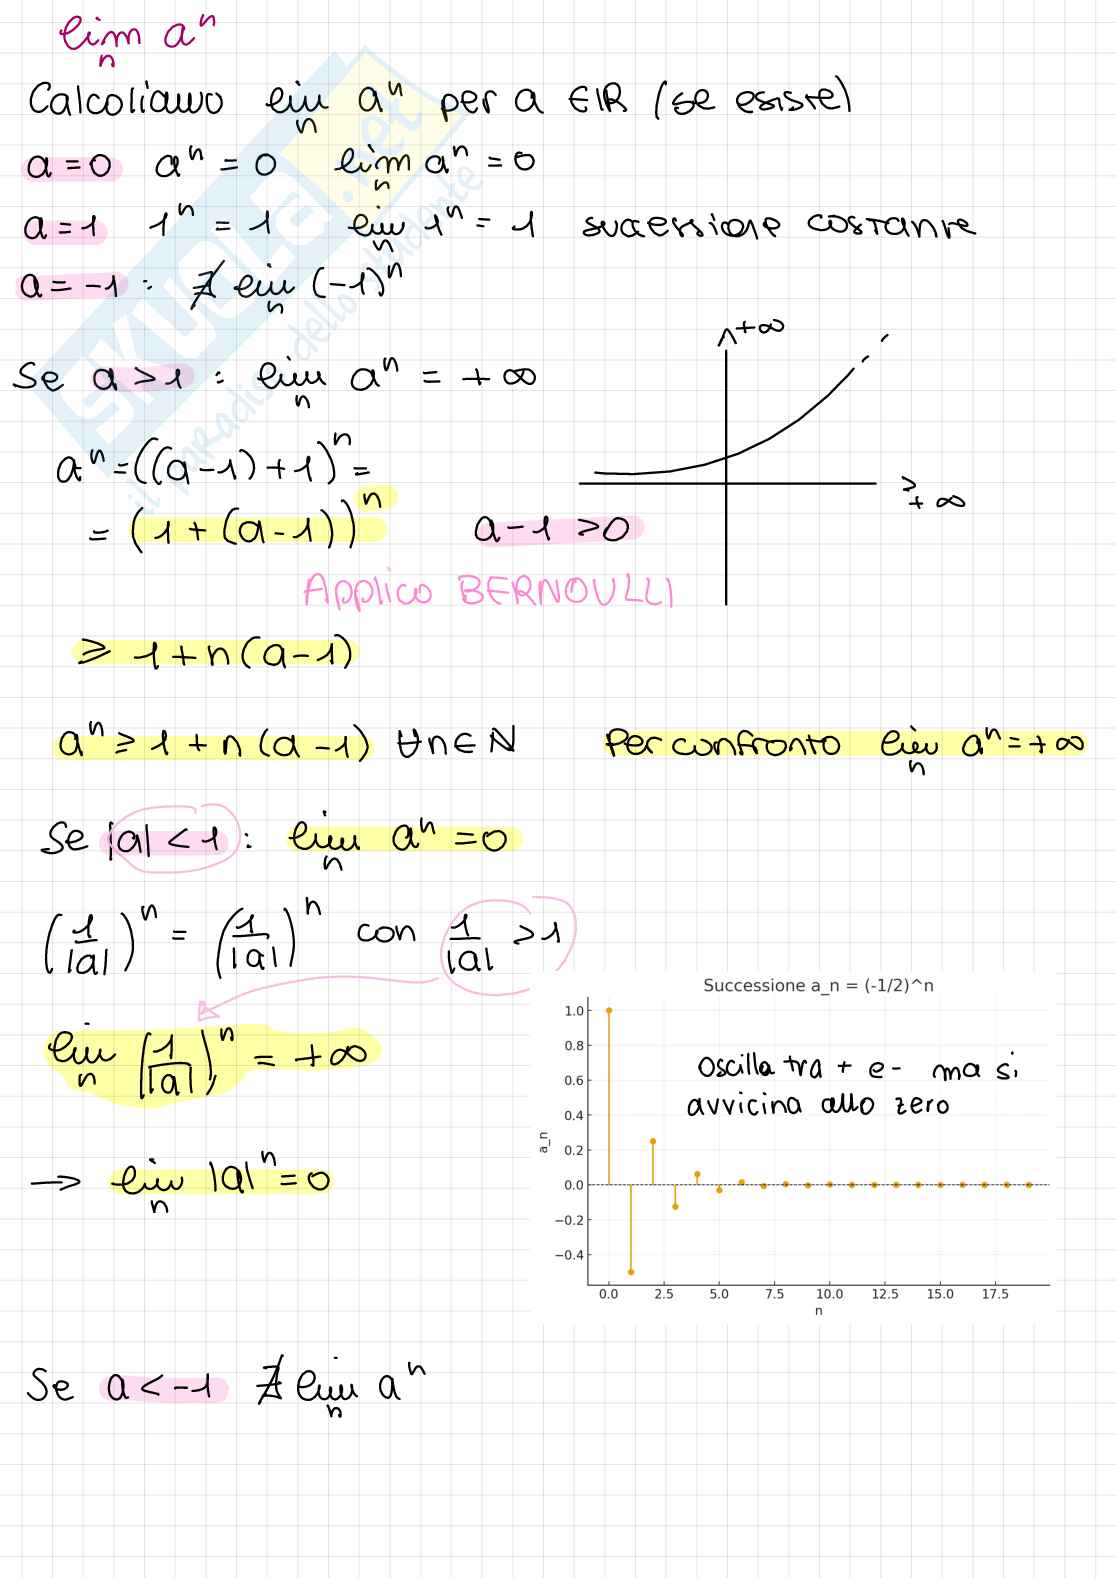 lim aⁿ
n
Calcoliamo lim aⁿ per a ∈ ℝ (se esiste)
n
a = 0 aⁿ = 0 lim aⁿ = 0
n
a = 1 1ⁿ = 1 lim 1ⁿ = 1 successione costante
n
a = -1 : ∄ lim (-1)ⁿ
n
Se a > 1 : lim aⁿ = +∞
n
+∞
+∞
aⁿ = ((a-1)+1)ⁿ =
= (1+(a-1))ⁿ a-1 >0
Applico BERNOULLI
⩾ 1+n(a-1)
aⁿ ⩾ 1+n(a-1) ∀n∈ℕ Per confronto lim aⁿ = +∞
n
Se |a| < 1 : lim aⁿ = 0
n
(1/|a|)ⁿ = (1/|a|)ⁿ con 1/|a| > 1
lim (1/|a|)ⁿ = +∞
n
→ lim |a|ⁿ = 0
n
Successione a_n = (-1/2)^n
Oscilla tra + e - ma si
avvicina allo zero
a_n
1.0
0.8
0.6
0.4
0.2
0.0
−0.2
−0.4
0.0 2.5 5.0 7.5 10.0 12.5 15.0 17.5
n
Se a < -1 ∄ lim aⁿ
n
SKUOLA.net
il paradiso dello studente